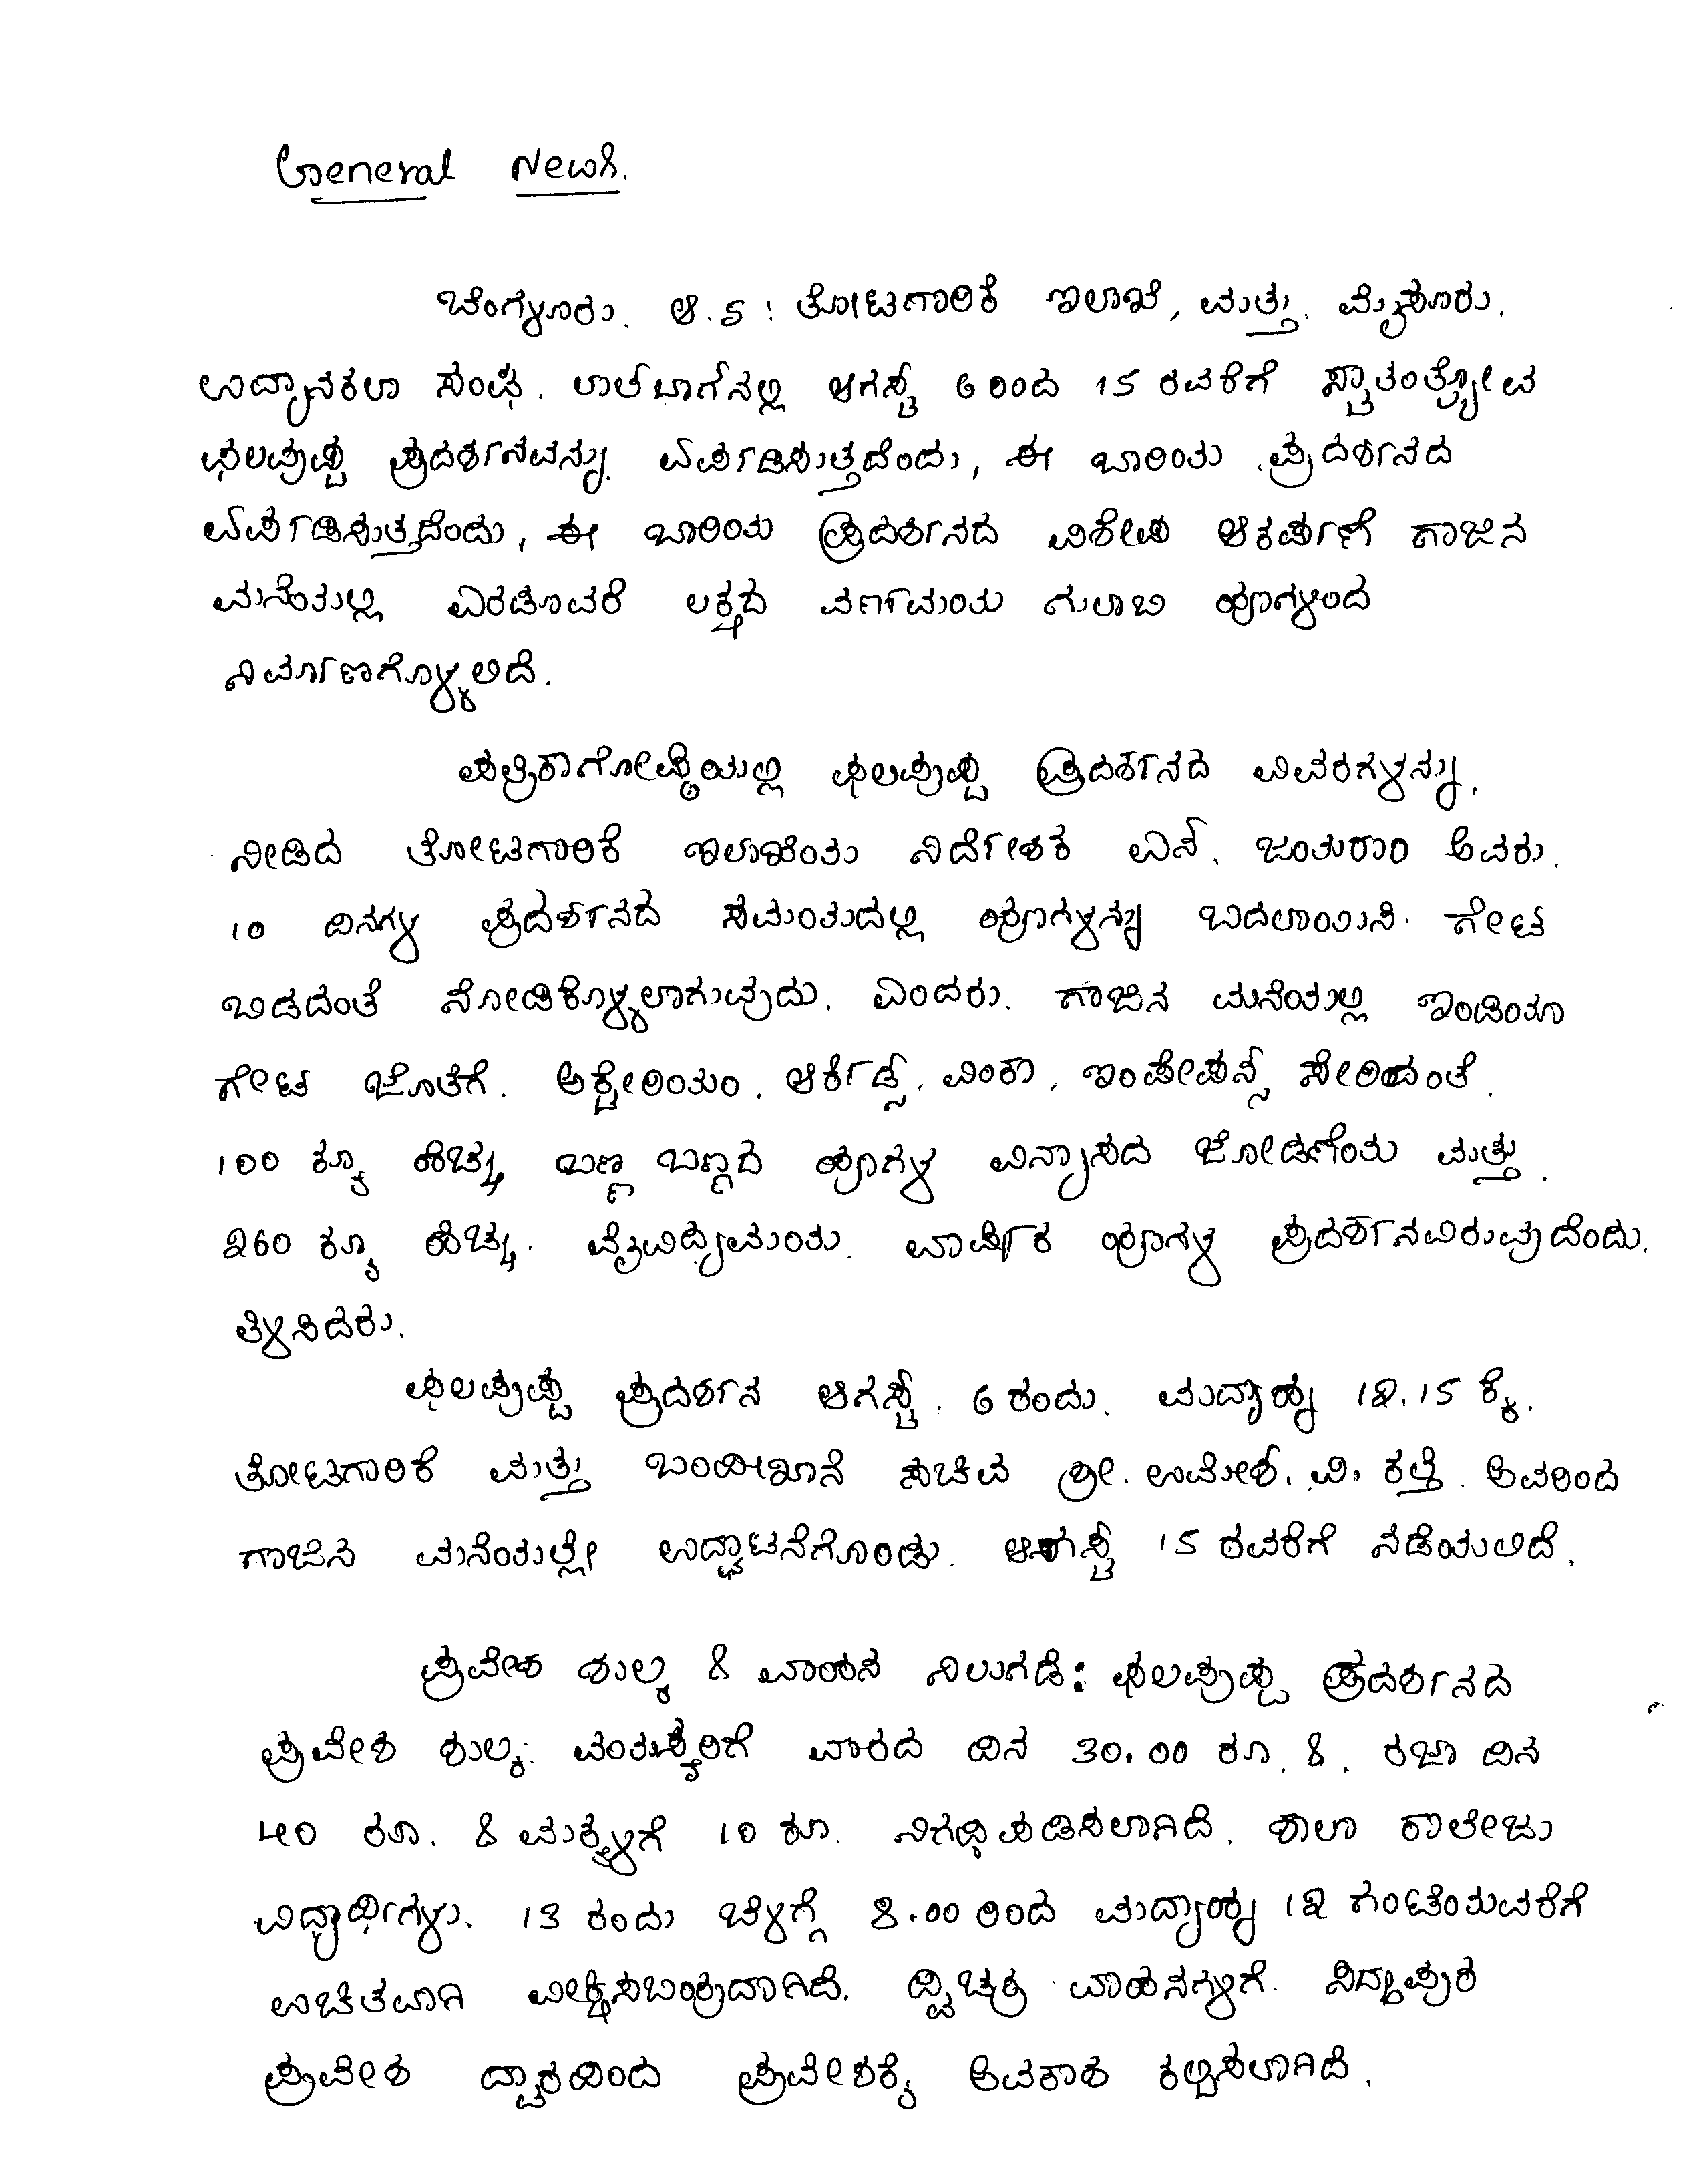 General News.
ಬೆಂಗಳೂರು. ಆ. 5 : ತೋಟಗಾರಿಕೆ ಇಲಾಖೆ, ಮತ್ತು. ಮೈಸೂರು.
ಉದ್ಯಾನಕಲಾ ಸಂಘ. ಲಾಲ್‌ಬಾಗ್‌ನಲ್ಲಿ ಆಗಸ್ಟ್ 6 ರಿಂದ 15 ರವರೆಗೆ ಸ್ವಾತಂತ್ರ್ಯೋವ
ಫಲಪುಷ್ಪ ಪ್ರದರ್ಶನವನ್ನು. ಏರ್ಪಡಿಸುತ್ತದೆಂದು, ಈ ಬಾರಿಯ ಪ್ರದರ್ಶನದ
ಏರ್ಪಡಿಸುತ್ತದೆಂದು, ಈ ಬಾರಿಯ ಪ್ರದರ್ಶನದ ವಿಶೇಷ ಆಕರ್ಷಣೆ ಗಾಜಿನ
ಮನೆಯಲ್ಲಿ ಎರಡೂವರೆ ಲಕ್ಷದ ವರ್ಣಮಯ ಗುಲಾಬಿ ಹೂಗಳಿಂದ
ನಿರ್ಮಾಣಗೊಳ್ಳಲಿದೆ.
ಪತ್ರಿಕಾಗೋಷ್ಠಿಯಲ್ಲಿ ಫಲಪುಷ್ಪ ಪ್ರದರ್ಶನದ ವಿವರಗಳನ್ನು.
ನೀಡಿದ ತೋಟಗಾರಿಕೆ ಇಲಾಖೆಯ ನಿರ್ದೇಶಕ ಎನ್. ಜಯರಾಂ ಅವರು.
10 ದಿನಗಳ ಪ್ರದರ್ಶನದ ಸಮಯದಲ್ಲಿ ಹೂಗಳನ್ನು ಬದಲಾಯಿಸಿ. ಗೇಟ್
ಬಿಡದಂತೆ ನೋಡಿಕೊಳ್ಳಲಾಗುವುದು. ಎಂದರು. ಗಾಜಿನ ಮನೆಯಲ್ಲಿ ಇಂಡಿಯಾ
ಗೇಟ್ ಜೊತೆಗೆ. ಅಕ್ಟೇರಿಯಂ. ಆರ್ಕಿಡ್ಸ್, ವಿಂಕಾ, ಇಂಪೇಷನ್ಸ್ ಸೇರಿದಂತೆ.
100 ಕ್ಕೂ ಹೆಚ್ಚು ಬಣ್ಣ ಬಣ್ಣದ ಹೂಗಳ ವಿನ್ಯಾಸದ ಜೋಡಣೆಯ ಮತ್ತು.
260 ಕ್ಕೂ ಹೆಚ್ಚು. ವೈವಿಧ್ಯಮಯ. ವಾರ್ಷಿಕ ಹೂಗಳ ಪ್ರದರ್ಶನವಿರುವುದೆಂದು.
ತಿಳಿಸಿದರು.
ಫಲಪುಷ್ಪ ಪ್ರದರ್ಶನ ಆಗಸ್ಟ್. 6 ರಂದು. ಮಧ್ಯಾಹ್ನ 12.15 ಕ್ಕೆ.
ತೋಟಗಾರಿಕೆ ಮತ್ತು ಬಂದೀಖಾನೆ ಸಚಿವ ಶ್ರೀ. ಉಮೇಶ್. ವಿ. ಕತ್ತಿ. ಅವರಿಂದ
ಗಾಜಿನ ಮನೆಯಲ್ಲೇ ಉದ್ಘಾಟನೆಗೊಂಡು. ಆಗಸ್ಟ್ 15 ರವರೆಗೆ ನಡೆಯಲಿದೆ.
ಪ್ರವೇಶ ಶುಲ್ಕ & ವಾಹನ ನಿಲುಗಡೆ: ಫಲಪುಷ್ಪ ಪ್ರದರ್ಶನದ
ಪ್ರವೇಶ ಶುಲ್ಕ: ವಯಸ್ಕರಿಗೆ ವಾರದ ದಿನ 30.00 ರೂ. &. ರಜಾ ದಿನ
40 ರೂ. & ಮಕ್ಕಳಿಗೆ 10 ರೂ. ನಿಗಧಿಪಡಿಸಲಾಗಿದೆ. ಶಾಲಾ ಕಾಲೇಜು
ವಿದ್ಯಾರ್ಥಿಗಳು. 13 ರಂದು ಬೆಳಗ್ಗೆ 8.00 ರಿಂದ ಮಧ್ಯಾಹ್ನ 12 ಗಂಟೆಯವರೆಗೆ
ಉಚಿತವಾಗಿ ವೀಕ್ಷಿಸಬಹುದಾಗಿದೆ. ದ್ವಿಚಕ್ರ ವಾಹನಗಳಿಗೆ. ಸಿದ್ಧಾಪುರ
ಪ್ರವೇಶ ದ್ವಾರದಿಂದ ಪ್ರವೇಶಕ್ಕೆ ಅವಕಾಶ ಕಲ್ಪಿಸಲಾಗಿದೆ.